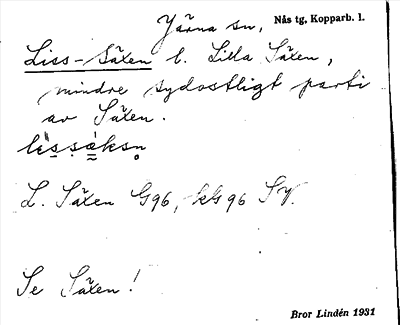 Järna sn, Nås tg, Kopparb. l.
Liss-Säxen l. Lilla Säxen,
mindre sydostligt parti
av Säxen.
L. Säxen G96, kG96 SV.
Se Säxen!
Bror Lindén 1931